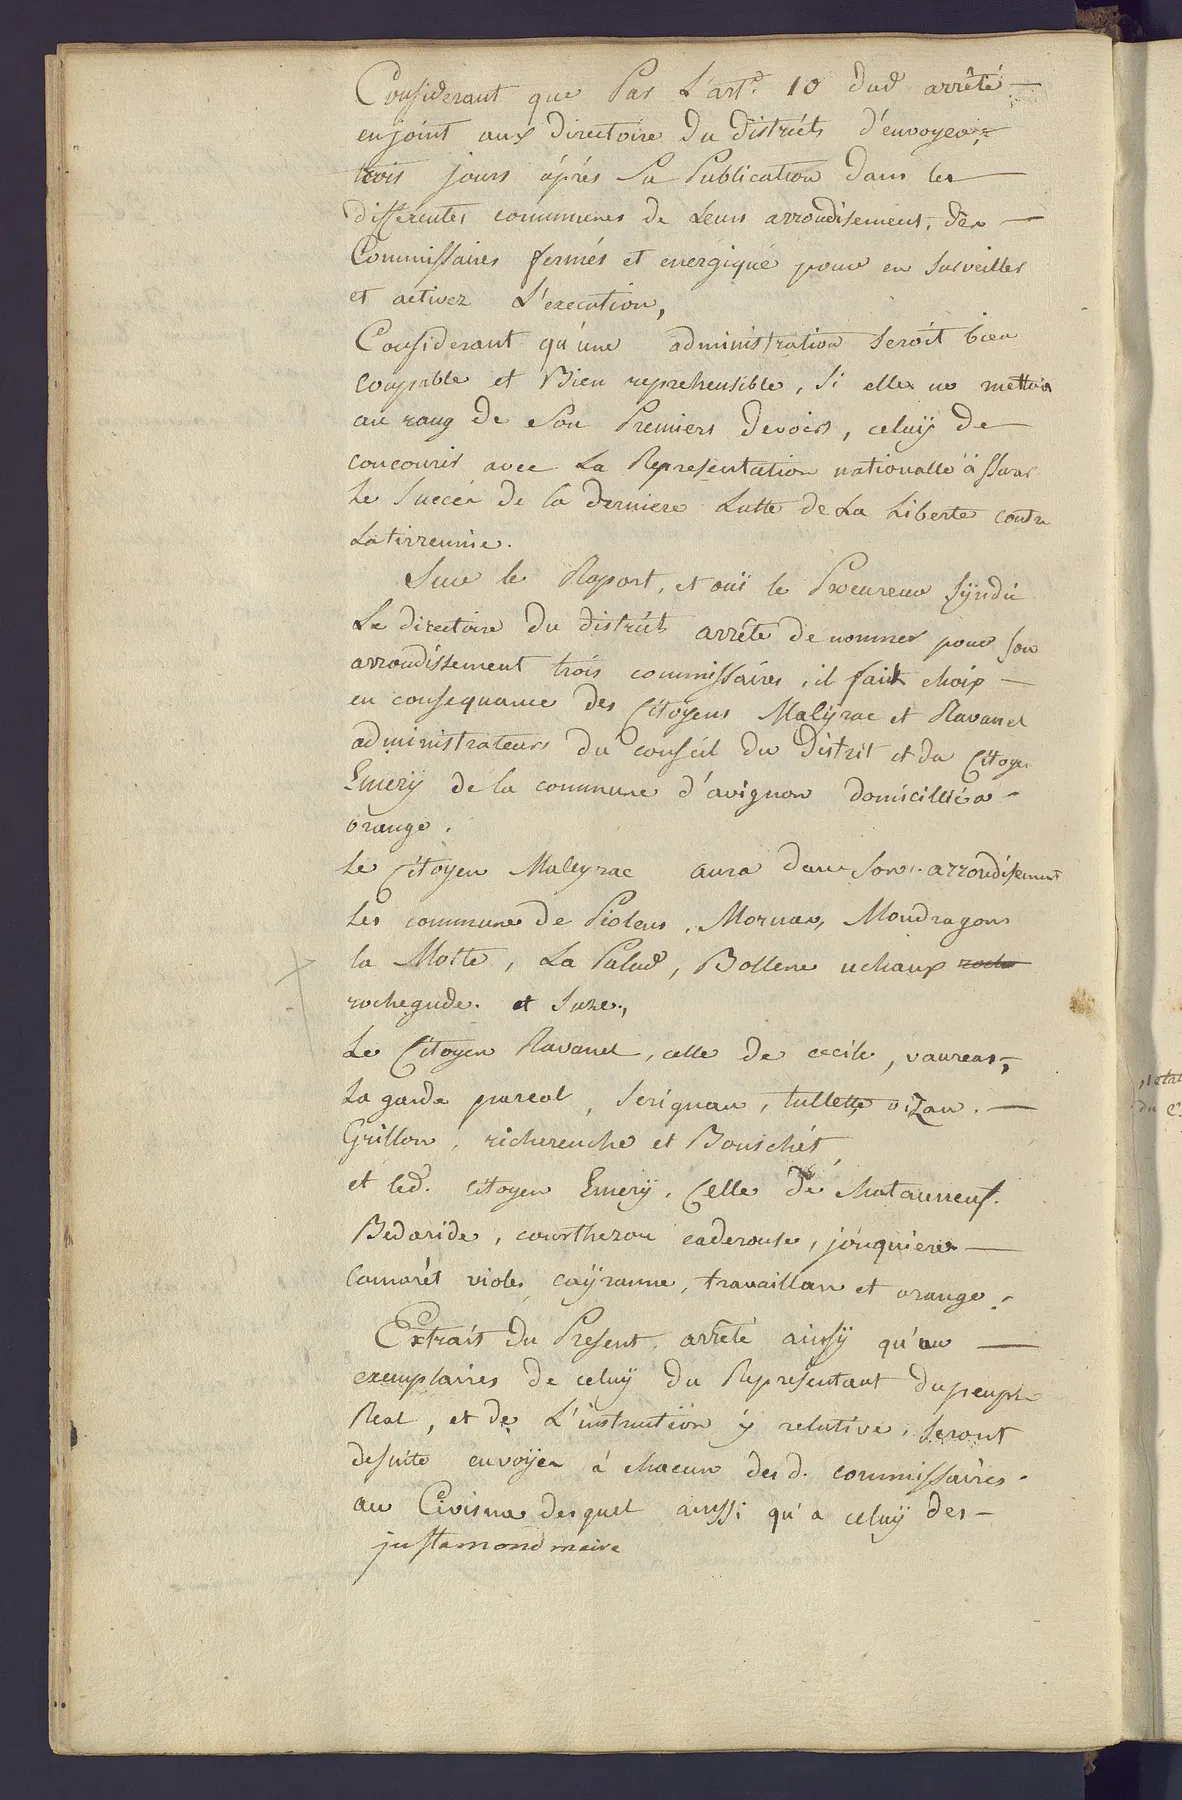 Considerant que Par L'art.^e 10 dud arrêté —
enjoint aux directoire du distriét d'envoyer,
trois jours áprés sa Publication dans les —
differentes communes de Leurs arrondisement, des —
Commissaires fermés et energique pour en surveiller
et activer L'execution,
Considerant qu'une administration seroit bien
coupable et Bien reprehensible, si elle ne mettoit
au rang de son Premiers devoirs, celuÿ de —
concourir avec La Representation nationalle à ssurer
Le succés de la derniere Lutte de La Liberté contre
La tirrennie.
Sur le Raport, et ouï le Procureur sÿndic
Le directoire du distriét arrête de nommer pour son
arrondissement trois commissaires, il fait choix —
en consequance des Citoyens Malÿrac et Ravanel
administrateurs du conseil du District et du Citoyen
Emerÿ de la commune d'avignon domicillié a
orange.
Le Citoyen Maleyrac aura dans son arrondisement
Les commune de Piolens, Mornas, Mondragons
la Motte, La Palud, Bollene uchaux roche
rochegude. et Suze,
Le Citoyen Ravanel, celle de cecile, vaureas,
La garde pareol, serignan, tullette vizan. —
Grillon, richerenche et Bouschét,
et led. citoyen Emerÿ, Celle de chatauneuf.
Bedaride, courthezon caderouse, jonquieres —
Camarét violes, caÿranne, travaillan et orange.
Extrait du Present arrêté ainsÿ qu'un —
exemplaires de celuÿ du Representant du peuple
Réal, et de L'instruction ÿ relative, seront
desuite envoÿer á chacun des d. commissaires.
au Civisme desquel aussi qu'a celuÿ des —
justamond maire